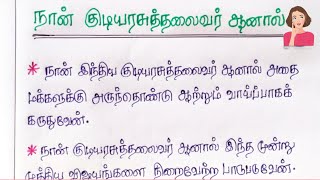 நான் குடியரசுத்தலைவர் ஆனால்
* நான் இந்திய குடியரசுத்தலைவர் ஆனால் அதை
மக்களுக்கு அருந்தொண்டு ஆற்றும் வாய்ப்பாகக்
கருதுவேன்.
* நான் குடியரசுத்தலைவர் ஆனால் இந்த மூன்று
முக்கிய விஷயங்களை நிறைவேற்ற பாடுபடுவேன்.